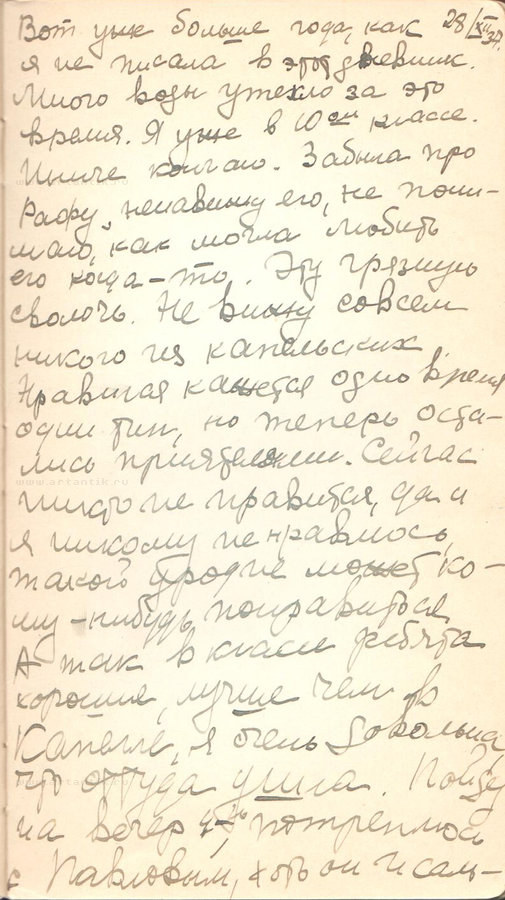 28/XII 37г.
Вот уже больше года, как
я не писала в этот дневник.
Много воды утекло за это
время. Я уже в 10ом классе.
Иначе кончаю. Забыла про
Рафу, ненавижу его, не пони-
маю, как могла любить
его когда-то. Эту грязную
сволочь. Не вижу совсем
никого из капельских
Нравился кажется одно время
один тип, но теперь оста-
лись приятелями. Сейчас
никто не нравится, да и
я никому не нравлюсь,
такой уродине может ко-
му-нибудь понравиться
А так в классе ребята
хорошие, лучше чем в
Капелле, я очень довольна,
что оттуда ушла. Пойду
на вечер потреплюсь
с Павловым, хоть он и саль-
www.artantik.ru